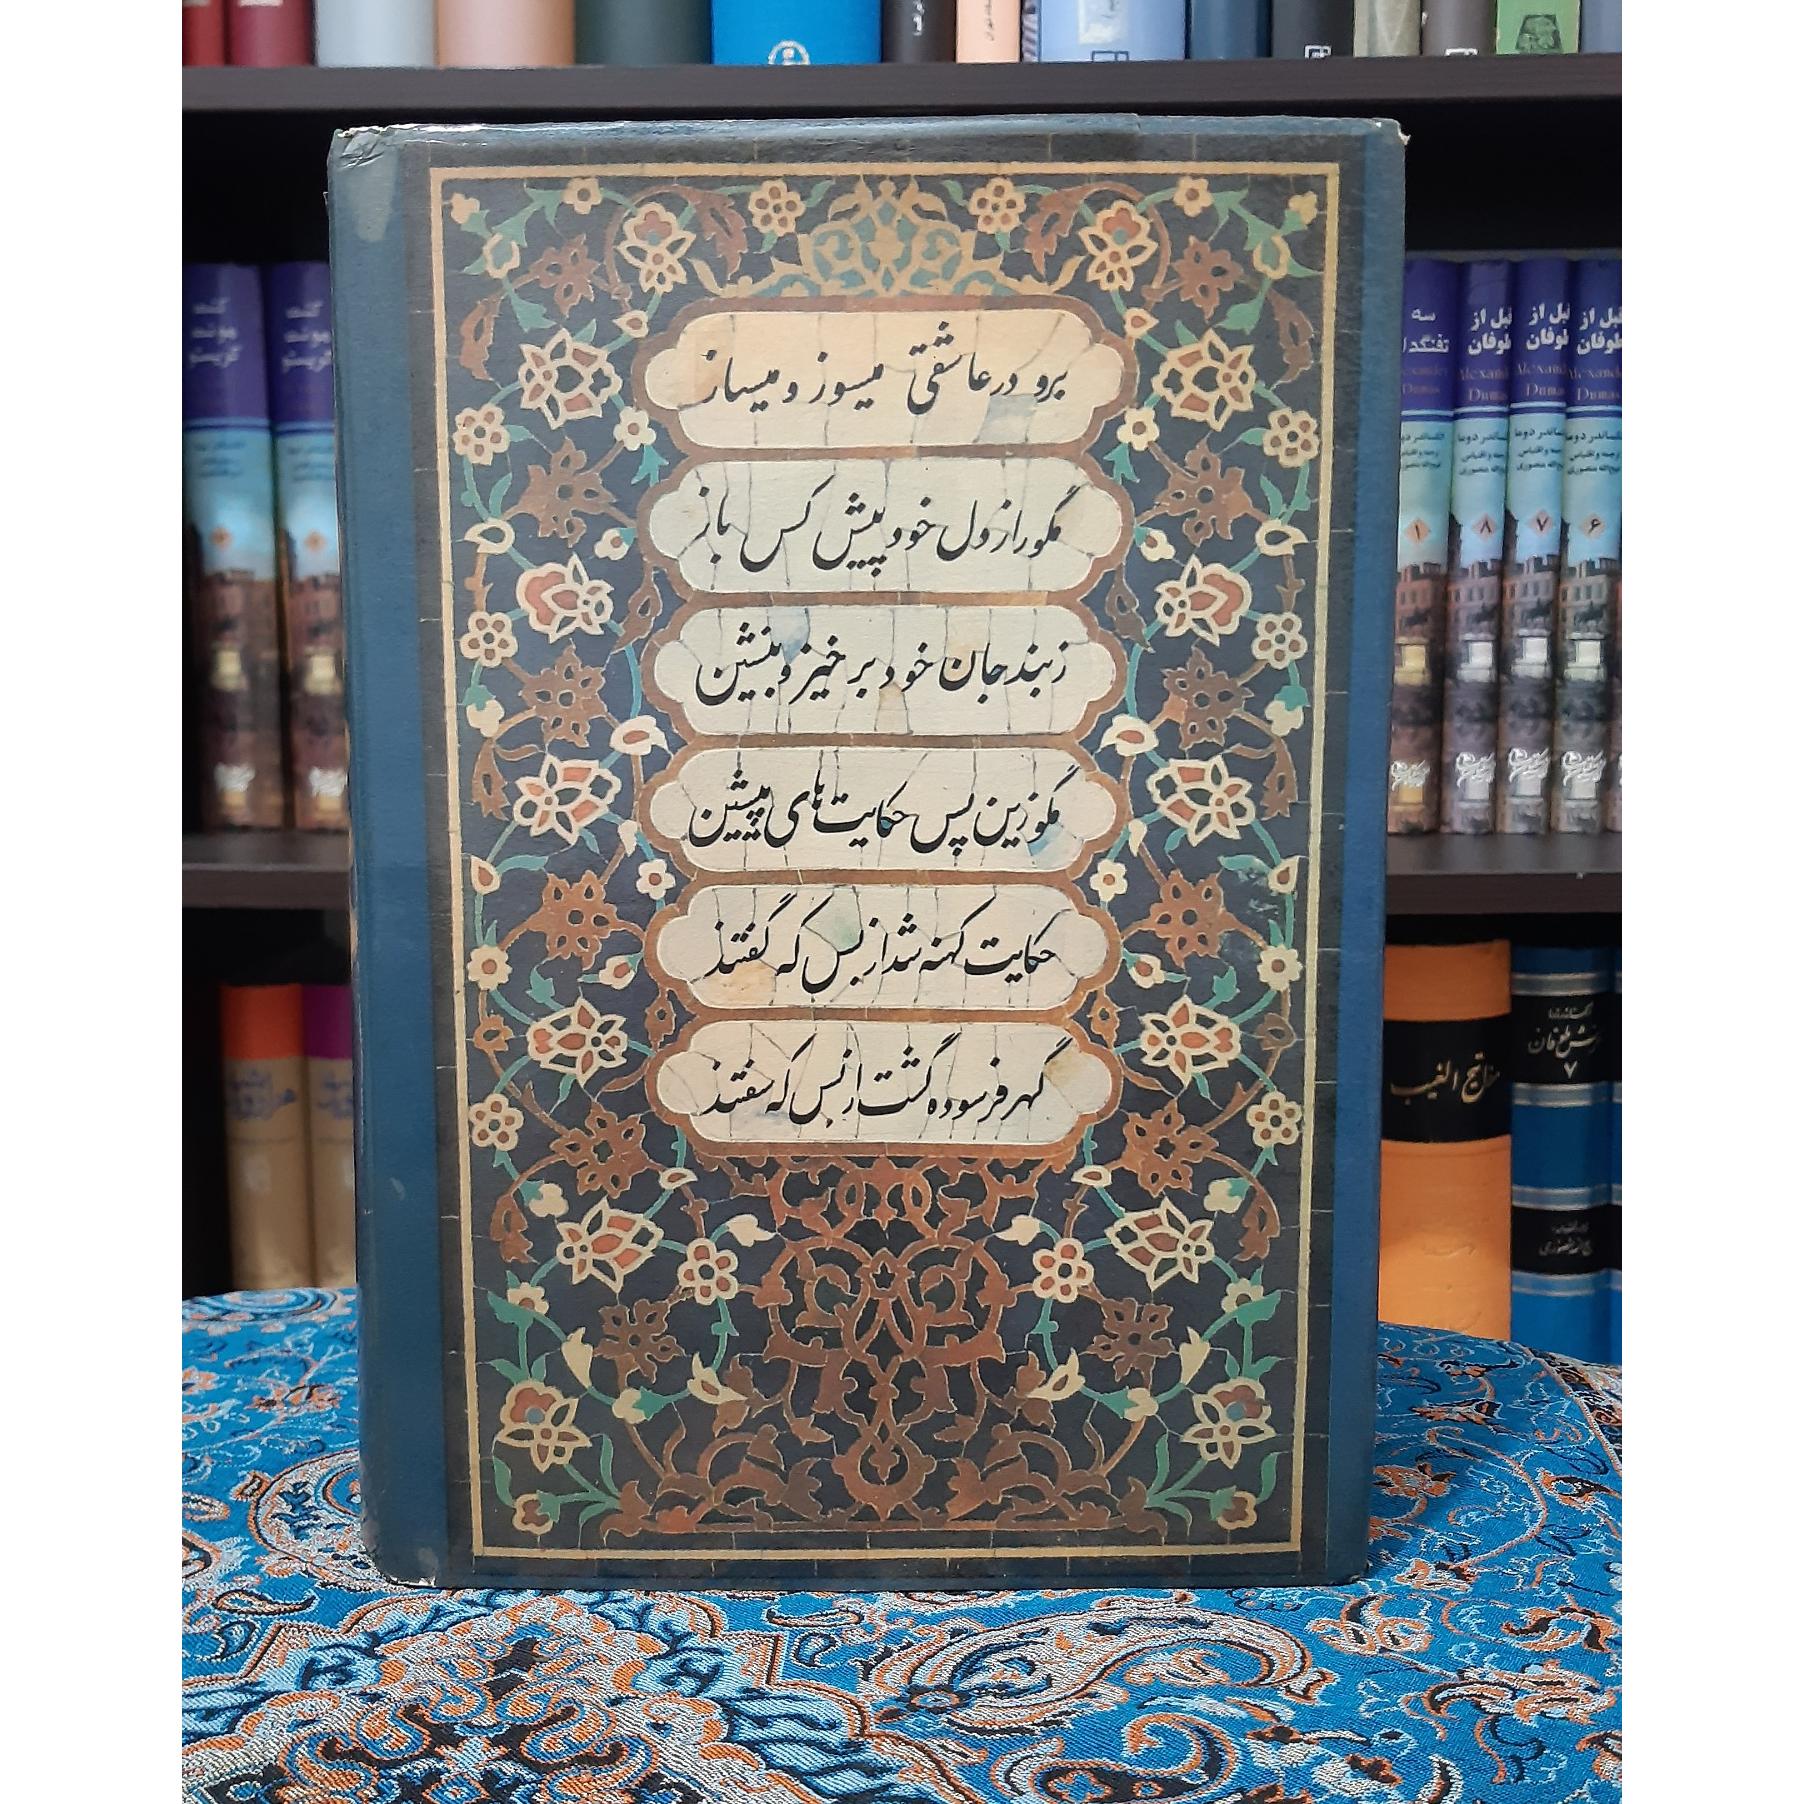 برو در عاشقی میسوز و میساز
مگو راز دل خود پیش کس باز
ز بند جان خود بر خیز و بنشین
مگو زین پس حکایت های پیشین
حکایت کهنه شد از بس که گفتند
گهر فرسوده گشت از بس که سفتند
کنت
مونت
کریستو
کنت
مونت
کریستو
سه
قبل از
طوفان
Dumas
قبل از
طوفان
Dumas
قبل از
طوفان
Dumas
۱
۸
۷
۶
مفاتیح الغیب
۷